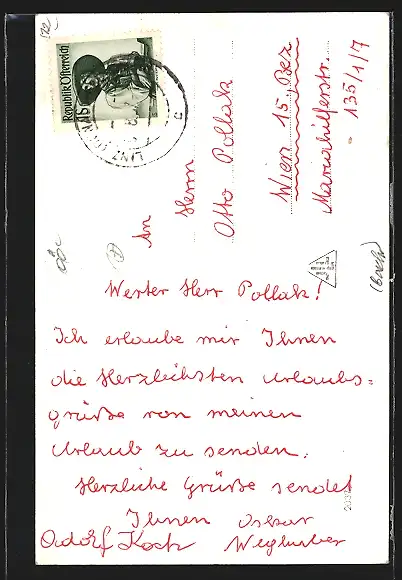 Republik Österreich
LINZ
An
Herrn
Otto Pollak
Wien 15. Bez
Mariahilferstr.
135/1/7
Werter Herr Pollak!
Ich erlaube mir Ihnen
die Herzlichsten Urlaubs=
grüße von meinen
Urlaub zu senden.
Herzliche Grüße sendet
Ihnen Oskar
Adolf Koch